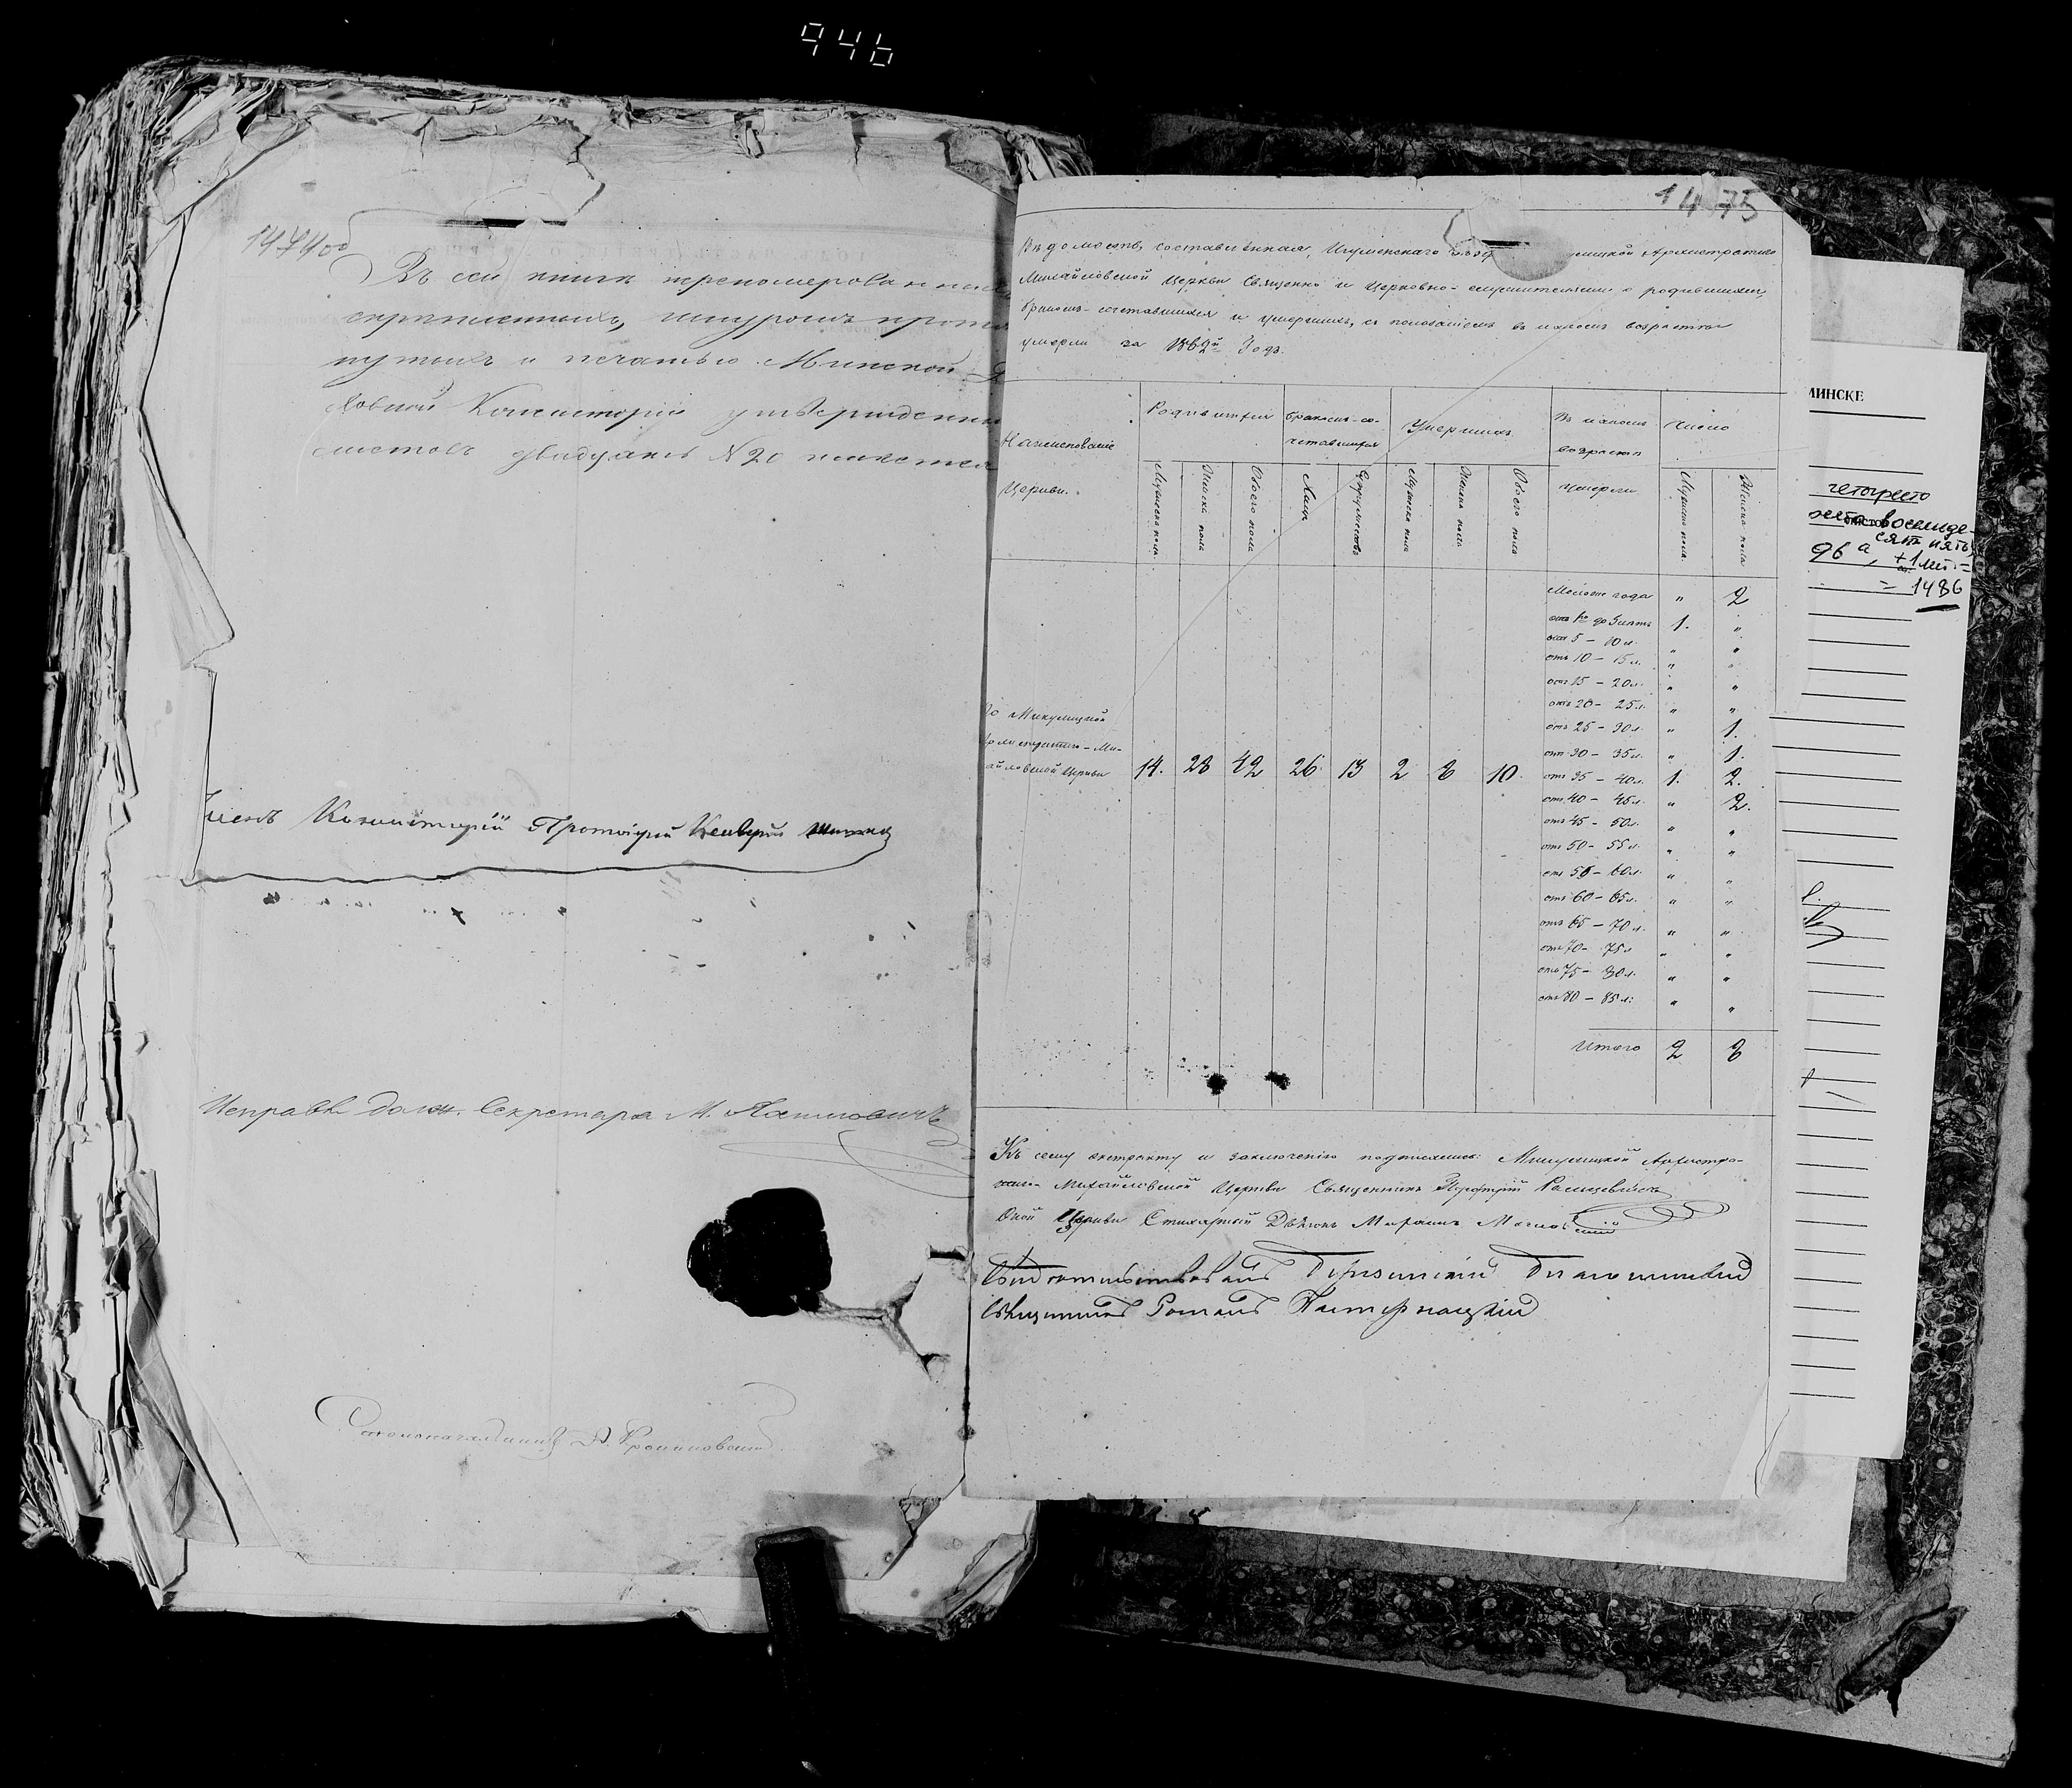 946
1474об
Въ сей книгѣ пренумерованных
скрѣпленныхъ, шнуромъ прон
нутыхъ и печатью Минской Д
ховной Консисторіи утвержденны
листовъ двадцать №20 имѣется
Членъ Консисторіи Протоіерей
Исправл. долж. Секретаря М.
Столоначальникъ А.
1475
Вѣдомость, составленная, Игуменскаго уѣзд улицкой Архистратиго
Михайловской Церкви Священно и Церковно-служителями о родившихся,
бракомъ-сочетавшихся и умершихъ, съ показаніемъ въ какомъ возрастѣ
умерли за 1862й Годъ.
Наименованіе
Церкви.
Родившихся
Мужеска пола.
Женска пола
Обоего пола
Бракомъ-со-
четавшихся
Лицъ
Супружествъ
Умершихъ
Мужеска пола
Женска пола
Обоего пола
Въ какомъ
возрастѣ
умерли
Число
Мужеска пола.
Женска пола
По Микулицкой
Архистратиго-Ми-
хайловской Церкви
14. 28 42 26 13 2 8 10.
Моложе года " 2
отъ 1го до 5 лѣтъ 1. "
отъ 5 – 10 л. " "
отъ 10 – 15 л. " "
отъ 15 – 20 л. " "
отъ 20 – 25 л. " "
отъ 25 – 30 л. " 1.
отъ 30 – 35 л. " 1.
отъ 35 – 40 л. 1. 2.
отъ 40 – 45 л. " 2.
отъ 45 – 50 л. " "
отъ 50 – 55 л. " "
отъ 55 – 60 л. " "
отъ 60 – 65 л. " "
отъ 65 – 70 л. " "
отъ 70 – 75 л " "
отъ 75 – 80 л. " "
отъ 80 – 85 л. " "
Итого 2 8
Къ сему экстракту и заключенію подписались: Микулицкой Архистра-
тиго-Михайловской Церкви Священникъ Порфирій
Оной Церкви Стихарный Дьячокъ
Свидѣтельствовалъ Березинскій Благочинный
Священникъ Романъ
МИНСКЕ
четыреста
восемьде-
сят пять
96 а, + 1 лит. =
= 1486